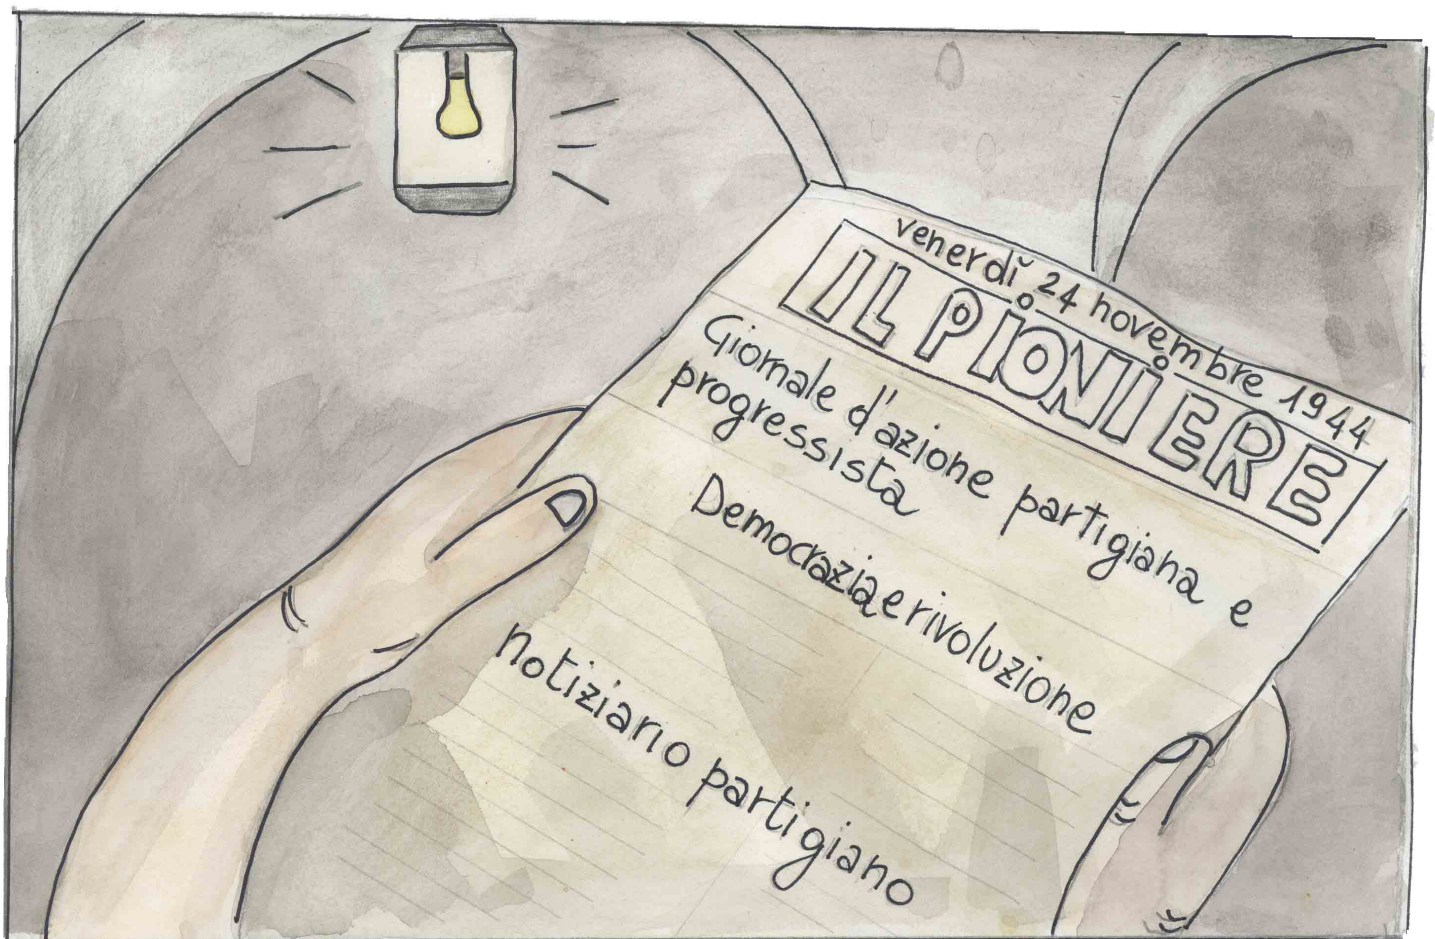 venerdì 24 novembre 1944
IL PIONIERE
Giornale d'azione partigiana e
progressista
Democrazia e rivoluzione
Notiziario partigiano